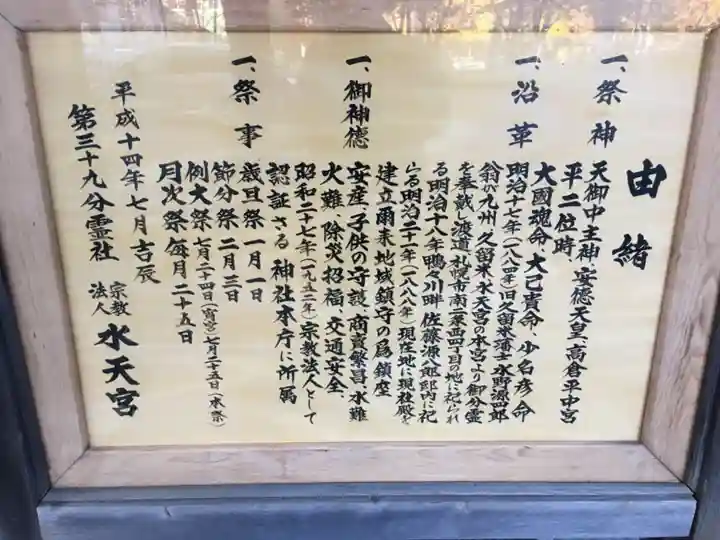 由緒
一、祭神
天御中主神、安徳天皇、高倉平中宮
平二位時
大國魂命、大己貴命、少名彦命
一、沿革
明治十七年(一八八四年)旧久留米藩士水野源四郎
翁が九州、久留米、水天宮の本宮より御分霊
を奉戴し渡道、札幌市南二条西四丁目の地に祀られ
る明治十八年鴨々川畔佐藤源八郎邸内に祀
らる明治二十一年(一八八八年)現在地に現社殿を
建立爾来地域鎮守の為鎮座
一、御神徳
安産、子供の守護、商賣繁昌、水難
火難、除災招福、交通安全、
昭和二十七年(一九五二年)宗教法人として
認証さる 神社本庁に所属
一、祭事
歳旦祭 一月一日
節分祭 二月三日
例大祭 七月二十四日(宵宮)七月二十五日(本祭)
月次祭 毎月二十五日
平成十四年七月吉辰
第三十九分霊社 宗教法人 水天宮